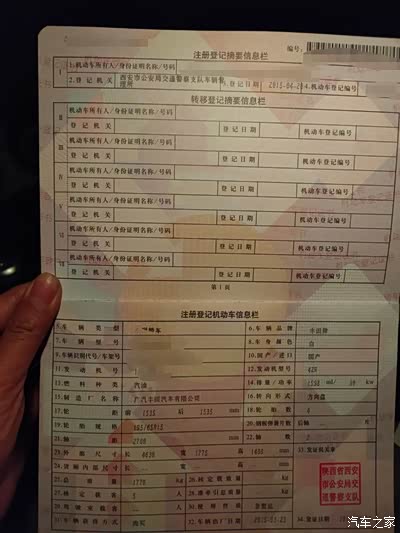 注册登记摘要信息栏
编号:
I
1.机动车所有人/身份证明名称/号码
2.登记机关 西安市公安局交通警察支队车辆管理所 3.登记日期 2015-04-20 4.机动车登记编号
转移登记摘要信息栏
II
机动车所有人/身份证明名称/号码
登记机关 登记日期 机动车登记编号
III
机动车所有人/身份证明名称/号码
登记机关 登记日期 机动车登记编号
IV
机动车所有人/身份证明名称/号码
登记机关 登记日期 机动车登记编号
V
机动车所有人/身份证明名称/号码
登记机关 登记日期 机动车登记编号
VI
机动车所有人/身份证明名称/号码
登记机关 登记日期 机动车登记编号
VII
机动车所有人/身份证明名称/号码
登记机关 登记日期 机动车登记编号
第1页
注册登记机动车信息栏
5.车辆类型 6.车辆品牌 丰田牌
7.车辆型号 8.车身颜色 白
9.车辆识别代号/车架号 10.国产/进口 国产
11.发动机号 12.发动机型号
13.燃料种类 汽油 14.排量/功率 ml/ kw
15.制造厂名称 广汽丰田汽车有限公司 16.转向形式 方向盘
17.轮距 前 1535 后 1535 mm 18.轮胎数 4
19.轮胎规格 20.钢板弹簧片数
21.轴距 2700 mm 22.轴数 2
23.外廓尺寸 长 宽 1775 高 mm 33.发证机关章
24.货厢内部尺寸 长 宽 高 mm
25.总质量 1770 kg 26.核定载质量 kg
27.核定载客 5 人 28.准牵引总质量 kg
29.驾驶室载客 人 30.使用性质 非营运
31.车辆获得方式 购买 32.车辆出厂日期 34.发证日期
陕西省西安
市公安局交
通警察支队
汽车之家